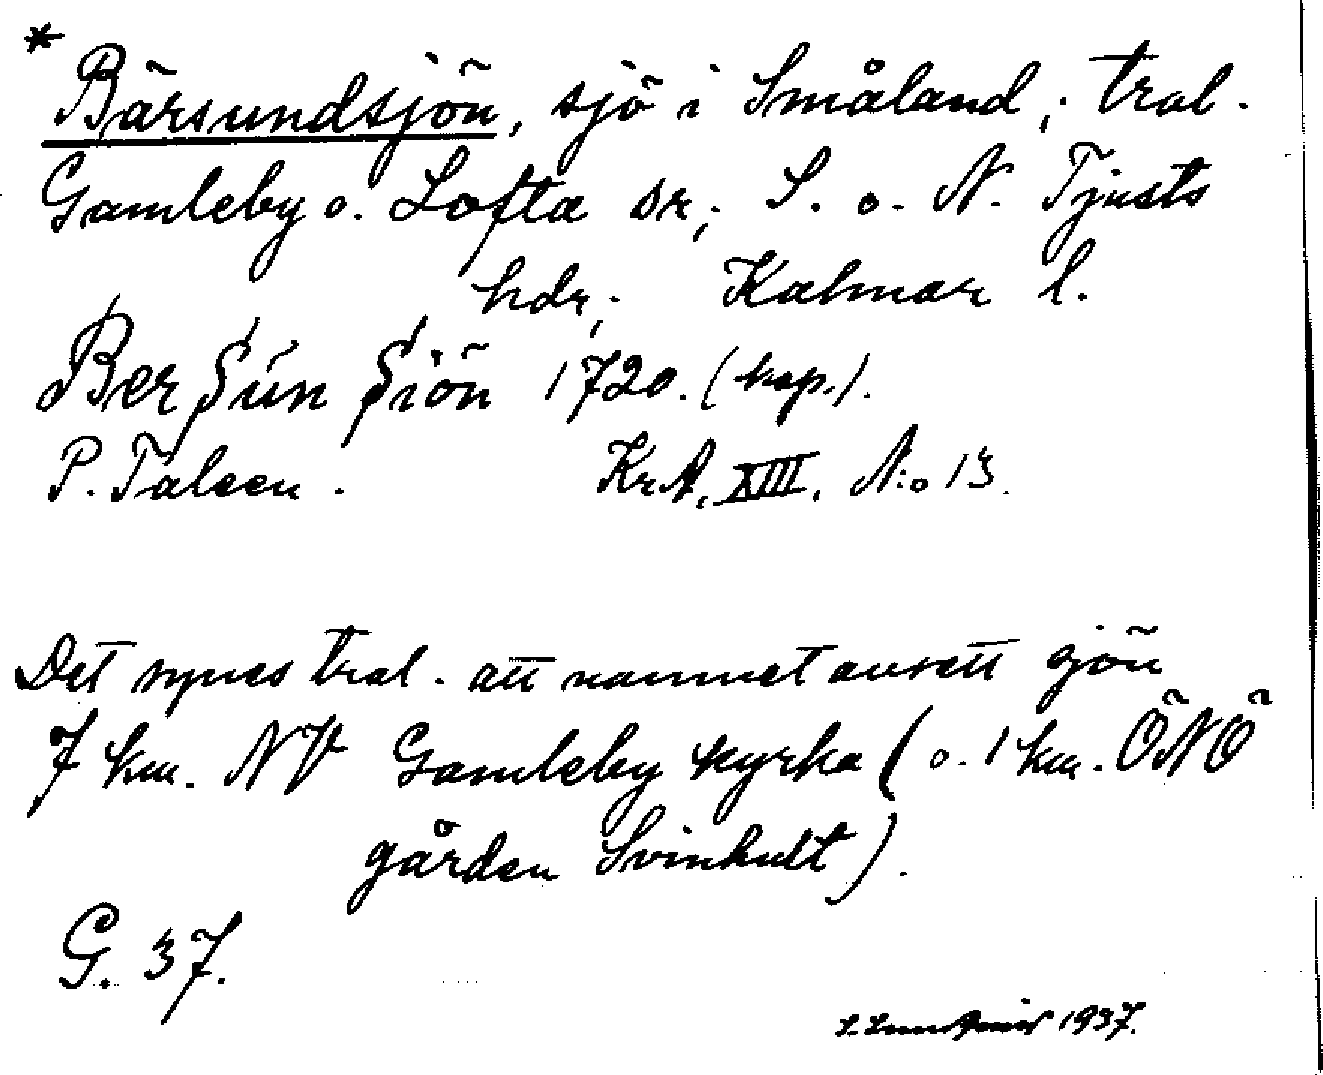 * Bärsundsjön, sjö i Småland; trol.
Gamleby o. Lofta sr; S. o. N. Tjusts
hdr; Kalmar l.
Ber Sún Siön 1720. (kop.).
P. Taleen. KrA, XIII, N:o 13.
Det synes trol. att namnet avsett sjön
7 km. NV Gamleby kyrka (o. 1 km. ÖNÖ
gården Svinhult).
G. 37.
1937.